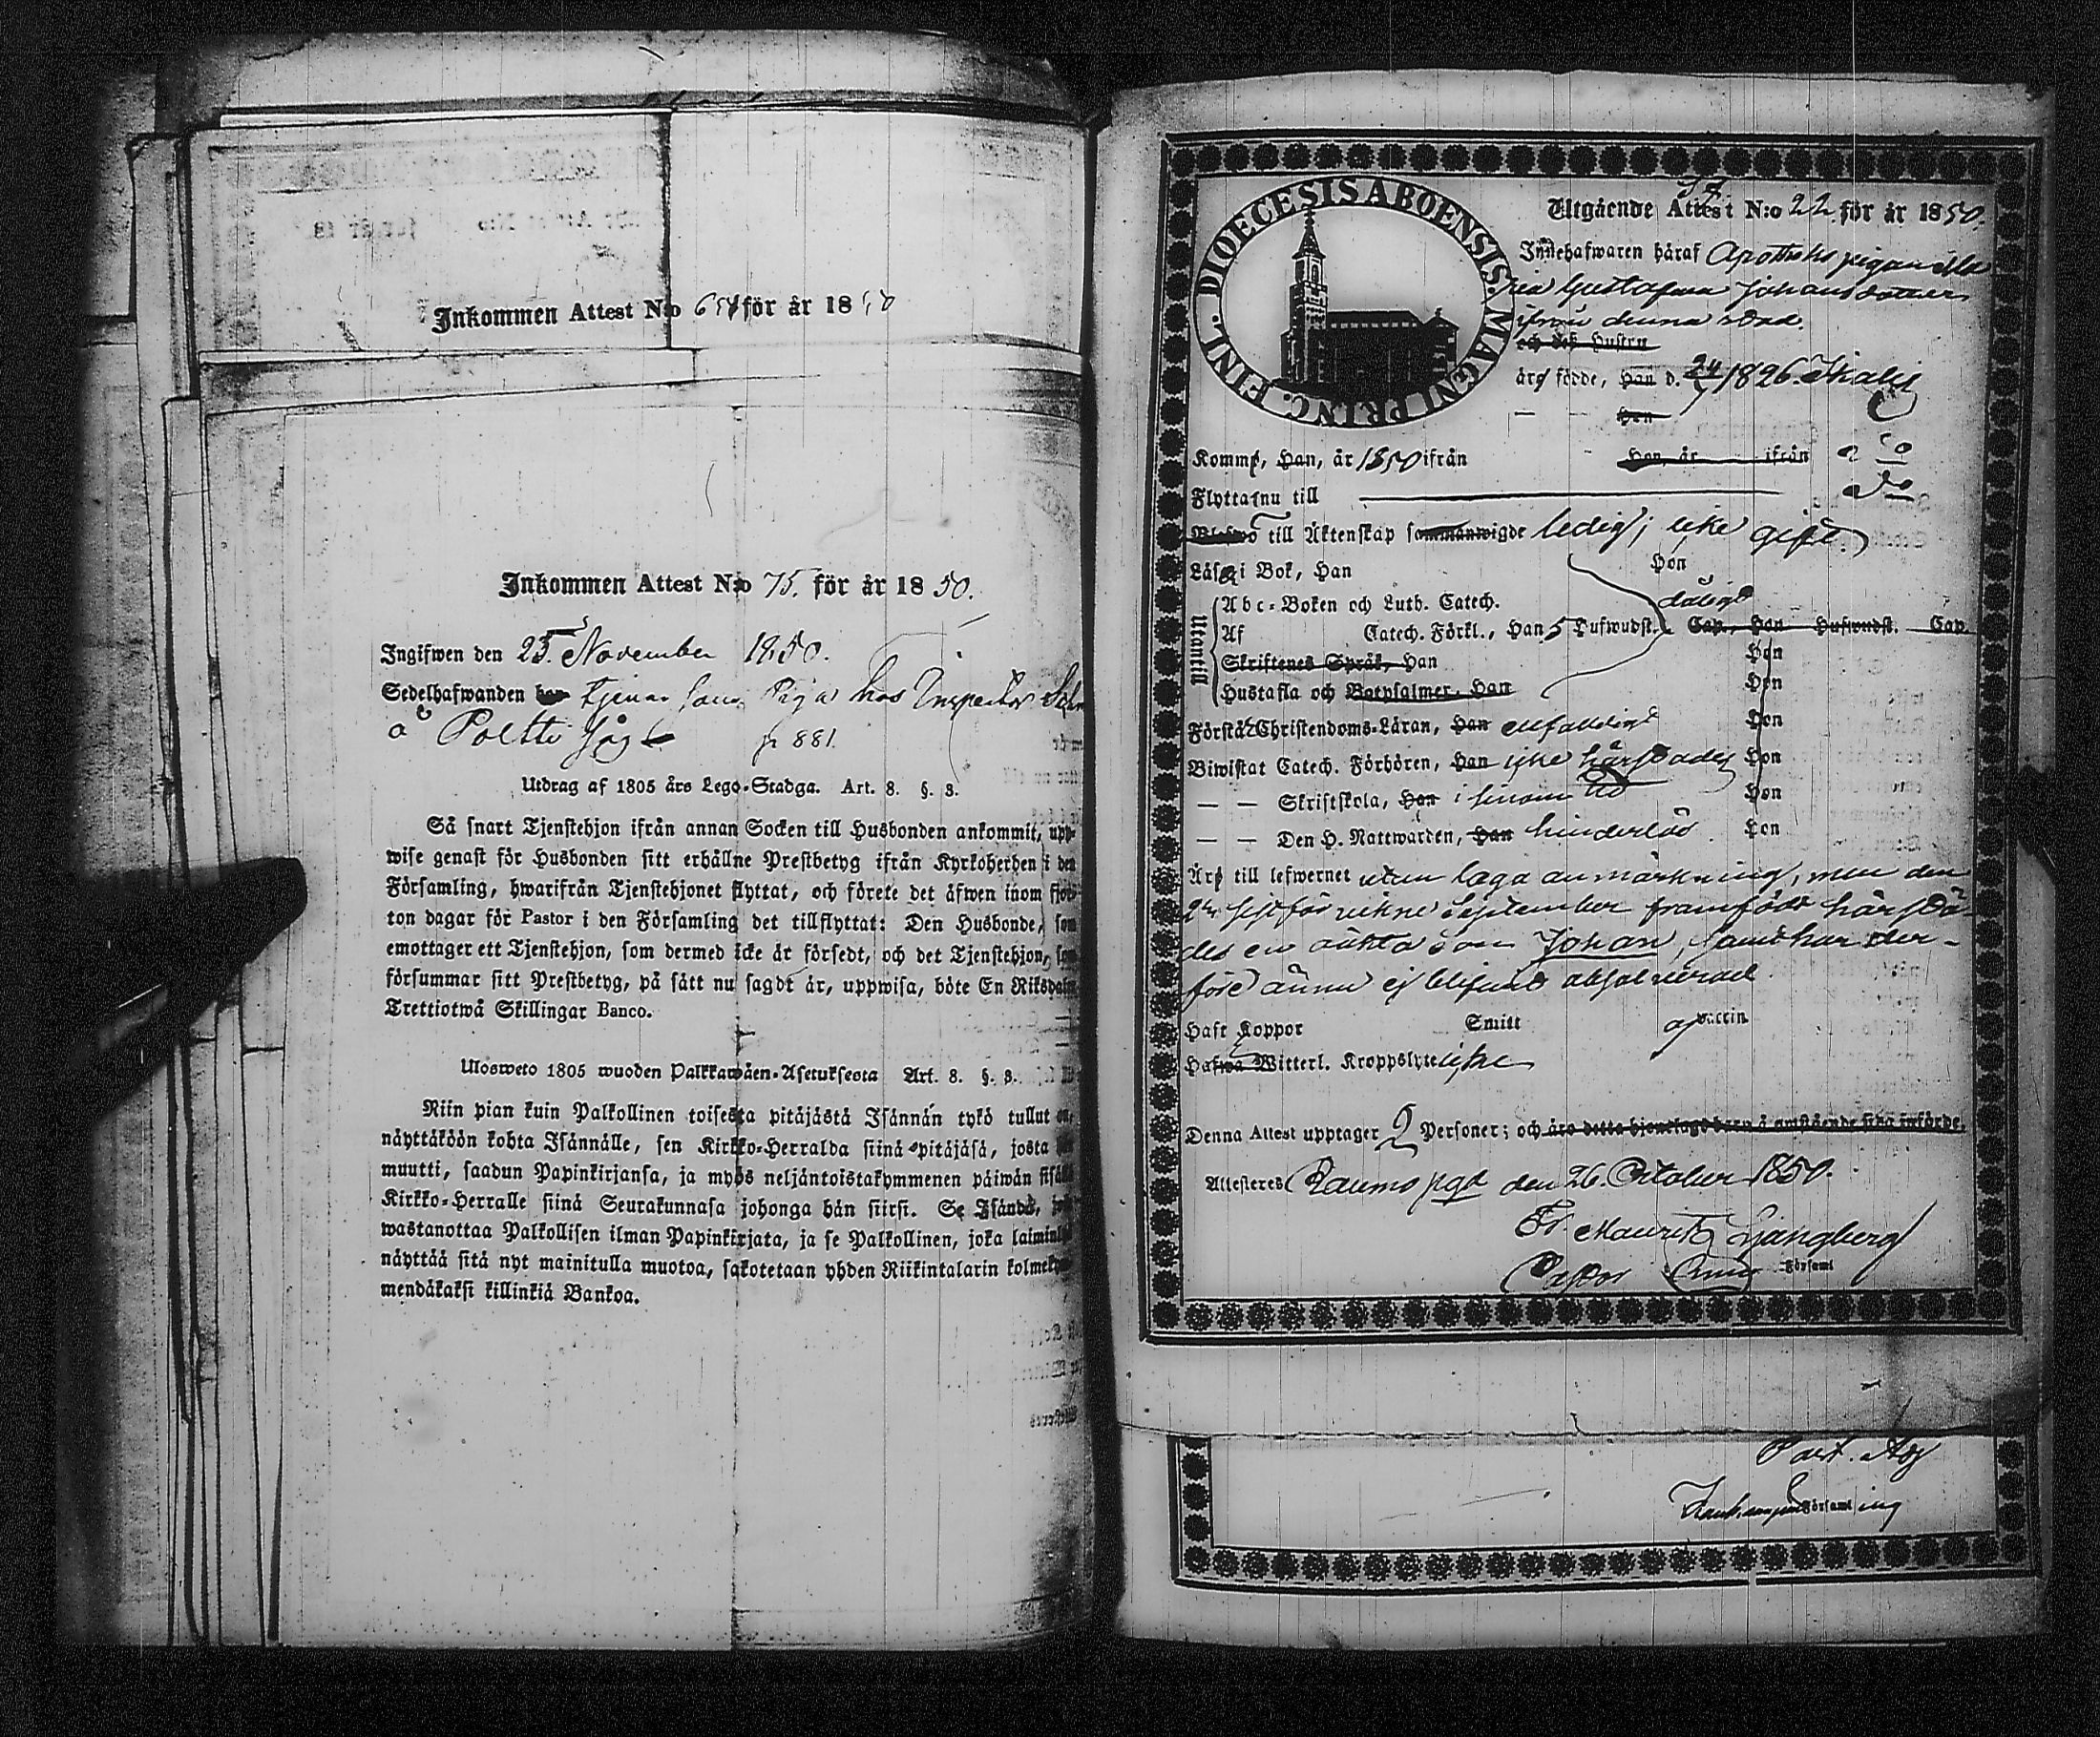 Inkommen Attest N:o för år 1850
Inkommen Attest N:o 75. för år 1850.
Ingifwen den 25. November 1850.
Sedelhafwanden har tjenar som Piga hos Inspector
å Poltti såg p 881.
Utdrag af 1805 års Lego-Stadga. Art. 8. §. 8.
Så snart Tjenstehjon ifrån annan Socken till Husbonden ankommit, upp-
wise genast för Husbonden sitt erhållne Prestbetyg ifrån Kyrkoherden i den
Församling, hwarifrån Tjenstehjonet flyttat, och förete det äfwen inom fjor-
ton dagar för Pastor i den Församling det tillflyttat: Den Husbonde, som
emottager ett Tjenstehjon, som dermed icke är försedt, och det Tjenstehjon, som
försummar sitt Prestbetyg, på sätt nu sagdt är, uppwisa, böte En Riksdaler
Trettiotwå Skillingar Banco.
Ulosweto 1805 wuoden Palkkawäen-Asetuksesta Art. 8. §. 8.
Niin pian kuin Palkollinen toisesta pitäjästä Isännän tykö tullut on,
näyttäköön kohta Isännälle, sen Kirkko-Herralda siinä pitäjäsä, josta
muutti, saadun Papinkirjansa, ja myös neljäntoistakymmenen päiwän sisällä
Kirkko-Herralle siinä Seurakunnasa johonga hän siirsi. Se Isändä, joka
wastanottaa Palkollisen ilman Papinkirjata, ja se Palkollinen, joka laiminlyö
näyttää sitä nyt mainitulla muotoa, sakotetaan yhden Riikintalarin kolmekym-
mendäkaksi killinkiä Bankoa.
DIOECESIS ABOENSIS. MAGNI PRINC. FINL.
Utgående Attest N:o 22 för år 1850.
Innehafwaren häraf Apotheks pigan Ma-
ria Gustafwa Johansdotter
ifrån denna stad.
och dess Hustru
äro födde, han d. 24/7 1826.
hon
Komme, Han, år 1850 ifrån Hon, år ifrån
Flytta nu till
Blefwo till Äktenskap sammanwigde ledig; icke gift
Läsa i Bok, Han Hon
Utantill
Abc-Boken och Luth. Catech. dåligt
Af Catech. Förkl., Han 5 Hufwudst. Cap., Hon Hufwudst. Cap.
Skriftenes Språk, Han Hon
Hustafla och Botpsalmer, Han Hon
Förstå Christendoms-Läran, Han enfaldigt Hon
Biwistat Catech. Förhören, Han icke härstädes Hon
— — Skriftskola, Han i sinom tid Hon
— — Den H. Nattwarden, Han hinderlös Hon
Äro till lefwernet utan laga anmärkning, men den
sistförvikne September framfödt härstä-
des en oäkta son Johan, samt har der-
före ännu ej blifwit absolverad.
Haft Koppor Smitt vaccin
Hafwa Witterl. Kroppslyte icke
Denna Attest upptager 2 Personer; och äro detta hjonelags barn å omstående sida införde.
Attesteres Raumo pgd den 26. October 1850.
Fr. Maurit Ljungberg
Pastor Församl
Past. Adj
Församling